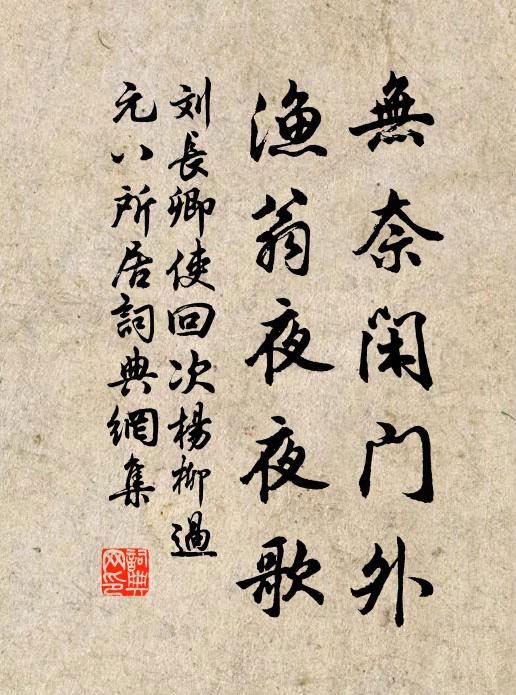 無奈閑门外
渔翁夜夜歌
刘長卿使回次楊柳過
元八所居詞典網集
詞典网印